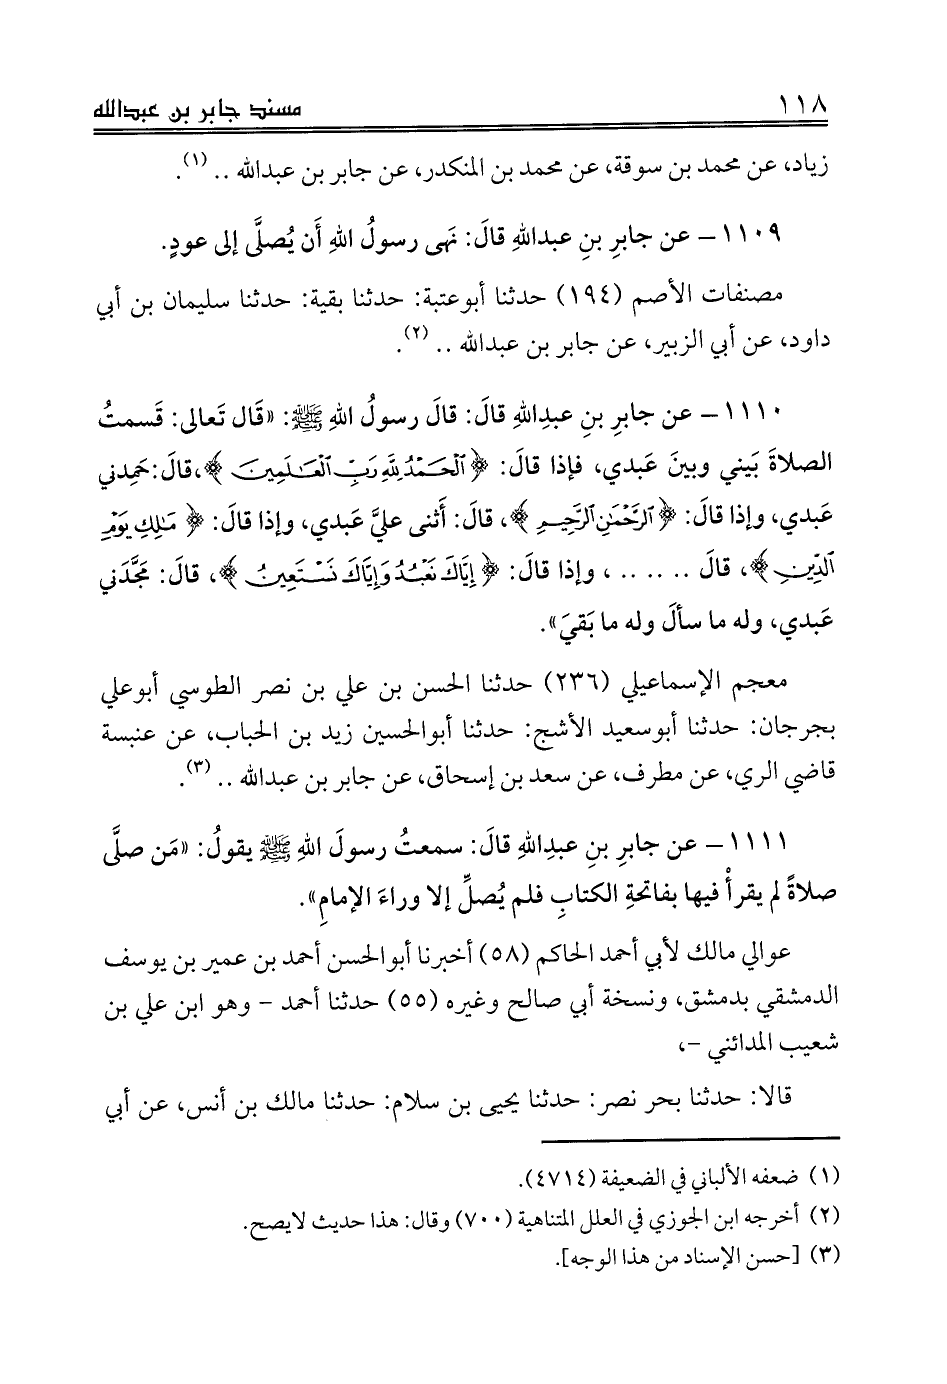 ١١٨ مسند جابر بن عبدالله
زياد، عن محمد بن سوقة، عن محمد بن المنكدر، عن جابر بن عبدالله .. (١).
١١٠٩ – عن جابرِ بنِ عبدِاللهِ قالَ: نَهى رسولُ اللهِ أَن يُصلَّى إلى عودٍ.
مصنفات الأصم (١٩٤) حدثنا أبوعتبة: حدثنا بقية: حدثنا سليمان بن أبي
داود، عن أبي الزبير، عن جابر بن عبدالله .. (٢).
١١١٠ – عن جابرِ بنِ عبدِاللهِ قالَ: قالَ رسولُ اللهِ ﷺ: «قَال تَعالى: قَسمتُ
الصلاةَ بَيني وبينَ عَبدي، فإذا قالَ: ﴿ ٱلْحَمْدُ لِلَّهِ رَبِّ ٱلْعَٰلَمِينَ ﴾،قالَ:حَمِدني
عَبدي، وإذا قالَ: ﴿ ٱلرَّحْمَٰنِ ٱلرَّحِيمِ ﴾، قالَ: أَثنى عليَّ عَبدي، وإذا قالَ: ﴿ مَٰلِكِ يَوْمِ
ٱلدِّينِ ﴾، قالَ .. .. .. ، وإذا قالَ: ﴿ إِيَّاكَ نَعْبُدُ وَإِيَّاكَ نَسْتَعِينُ ﴾، قالَ: مَجَّدَني
عَبدي، وله ما سألَ وله ما بَقيَ».
معجم الإسماعيلي (٢٣٦) حدثنا الحسن بن علي بن نصر الطوسي أبوعلي
بجرجان: حدثنا أبوسعيد الأشج: حدثنا أبوالحسين زيد بن الحباب، عن عنبسة
قاضي الري، عن مطرف، عن سعد بن إسحاق، عن جابر بن عبدالله .. (٣).
١١١١ – عن جابرِ بنِ عبدِاللهِ قالَ: سمعتُ رسولَ اللهِ ﷺ يقولُ: «مَن صلَّى
صلاةً لم يقرأْ فيها بفاتحةِ الكتابِ فلم يُصلِّ إلا وراءَ الإمامِ».
عوالي مالك لأبي أحمد الحاكم (٥٨) أخبرنا أبوالحسن أحمد بن عمير بن يوسف
الدمشقي بدمشق، ونسخة أبي صالح وغيره (٥٥) حدثنا أحمد – وهو ابن علي بن
شعيب المدائني –،
قالا: حدثنا بحر نصر: حدثنا يحيى بن سلام: حدثنا مالك بن أنس، عن أبي
(١) ضعفه الألباني في الضعيفة (٤٧١٤).
(٢) أخرجه ابن الجوزي في العلل المتناهية (٧٠٠) وقال: هذا حديث لايصح.
(٣) [حسن الإسناد من هذا الوجه].